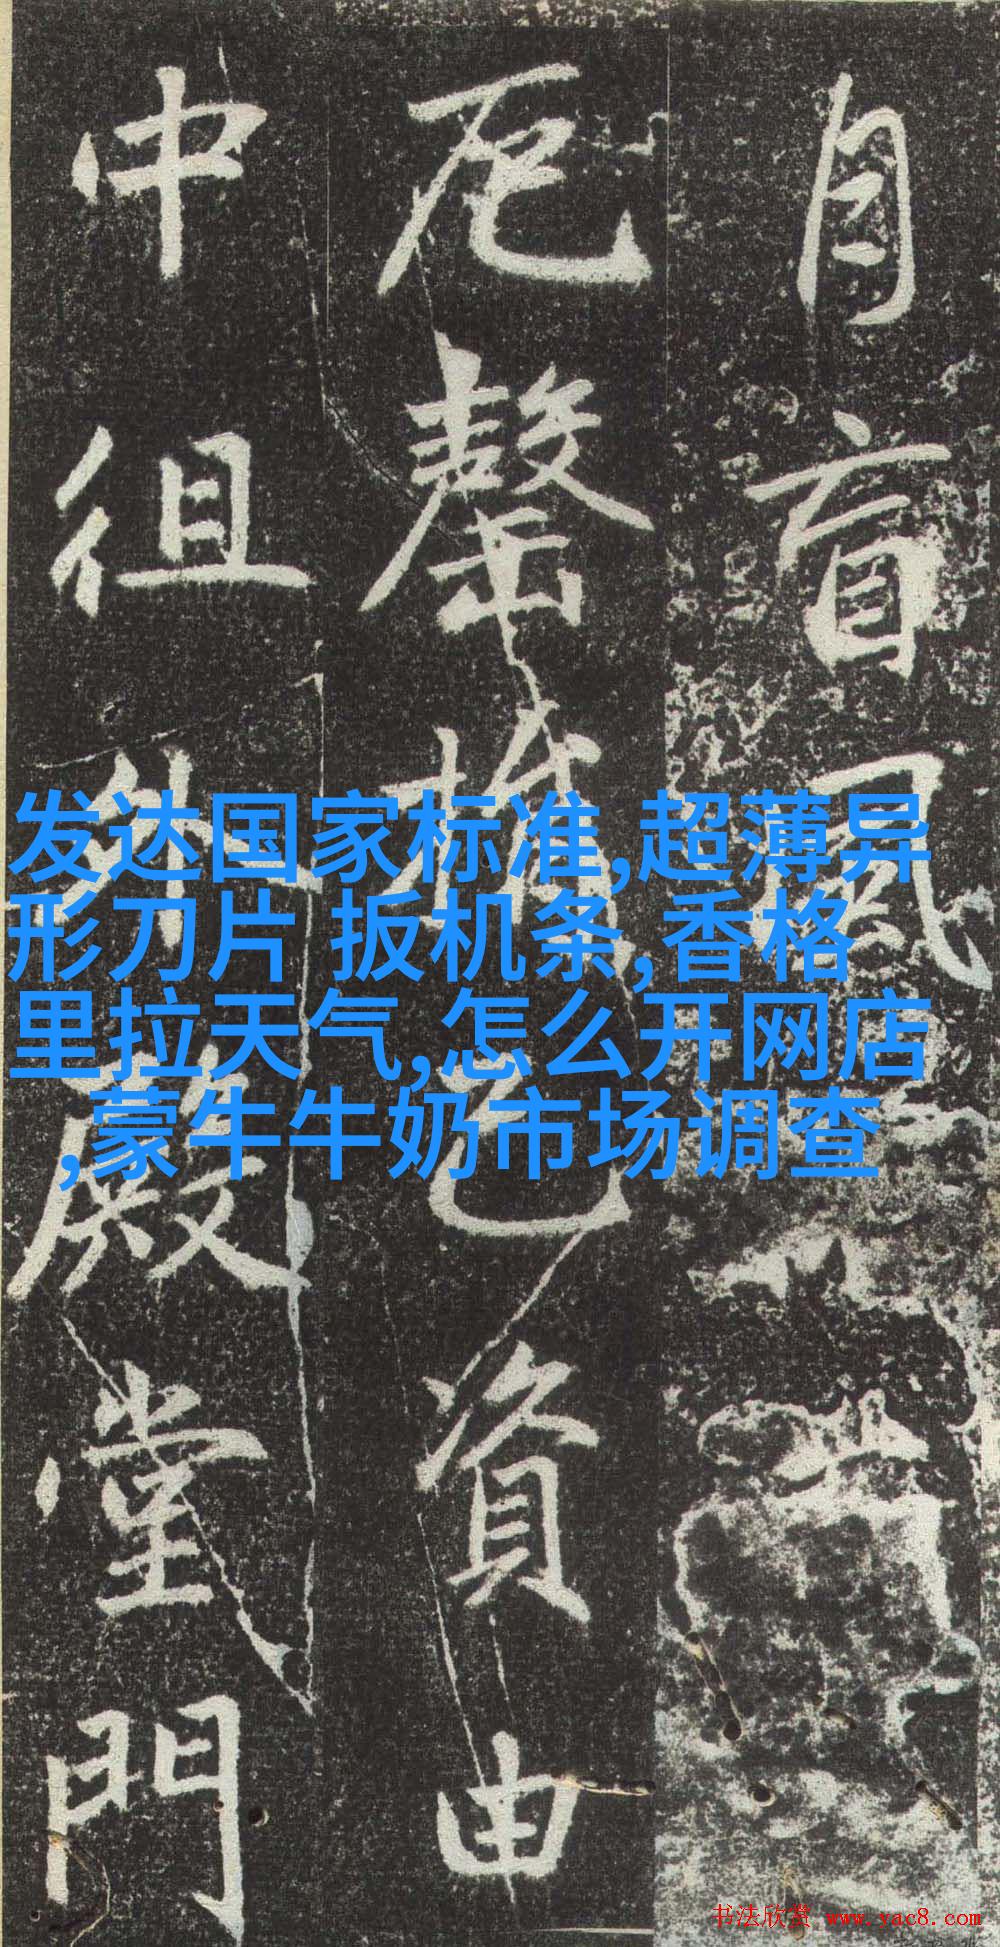 自盲風
罄資由
中徂外殿堂門
发达国家标准,超薄异
形刀片 扳机条,香格
里拉天气,怎么开网店
,蒙牛牛奶市场调查
书法欣赏 www.yac8.com